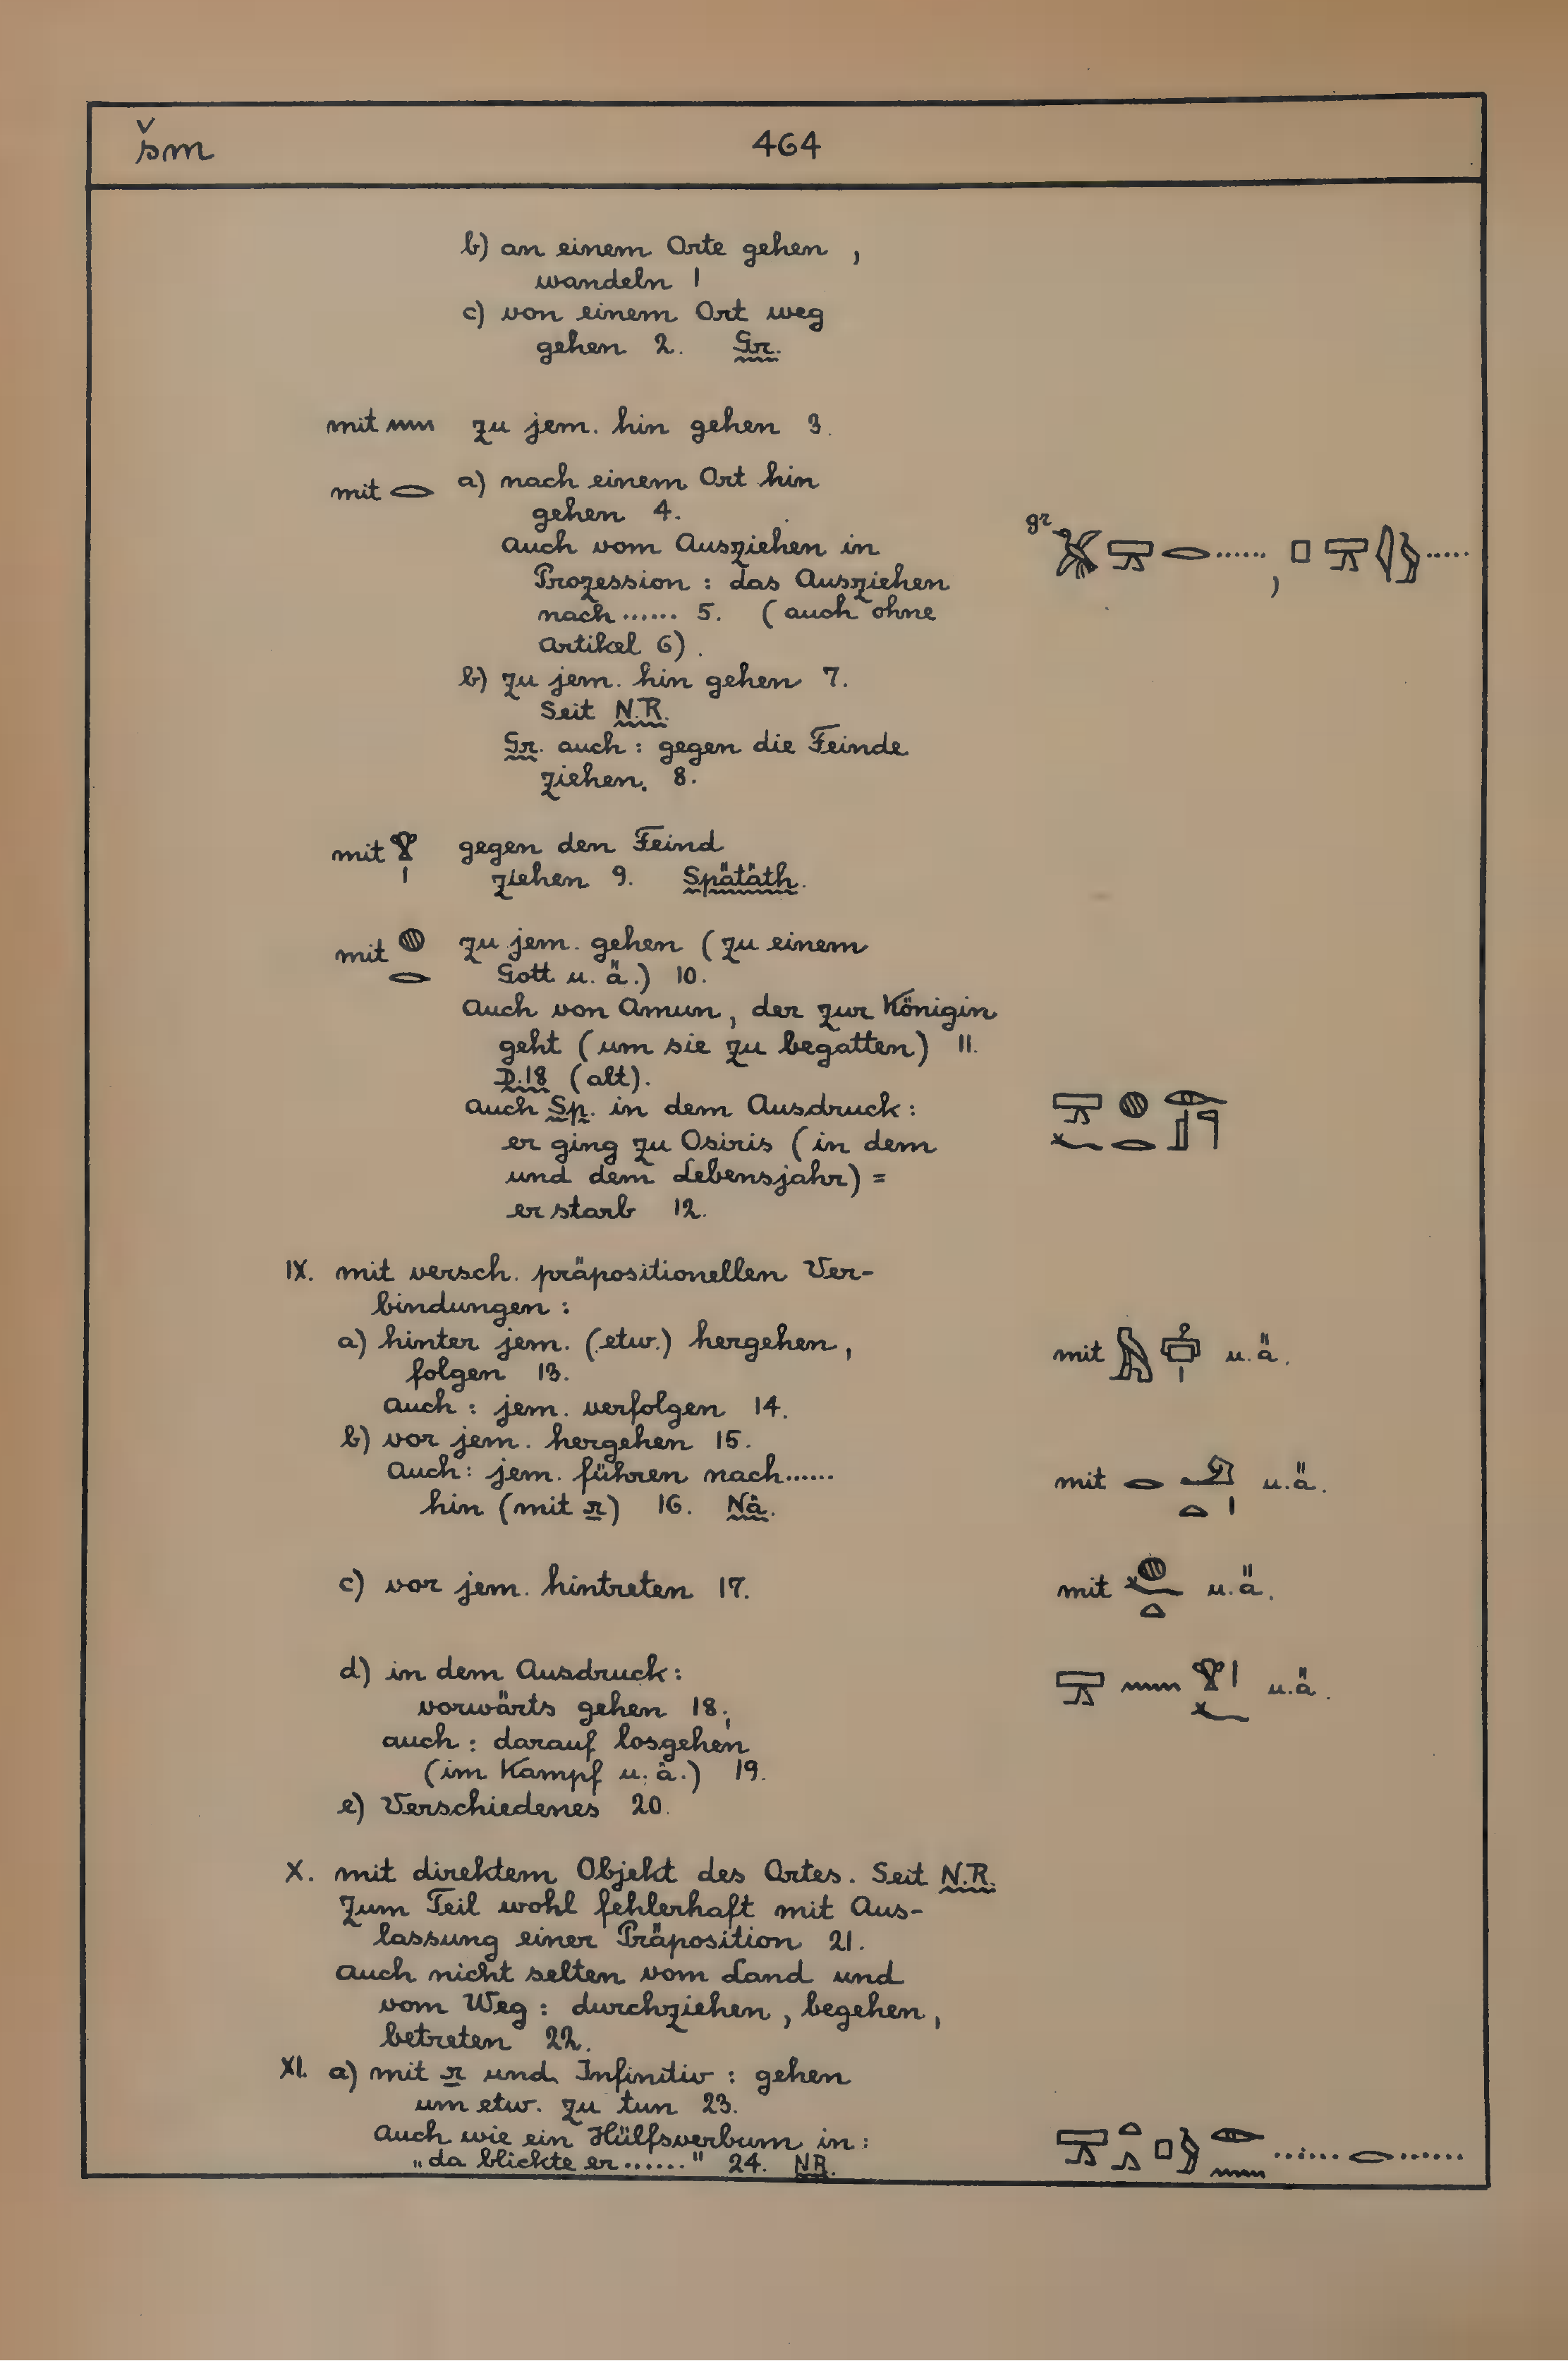 šm 464
b) an einem Orte gehen,
wandeln 1
c) von einem Ort weg
gehen 2. Gr.
mit 𓈖 zu jem. hin gehen 3.
mit 𓂋 a) nach einem Ort hin
gehen 4.
Auch vom Ausziehen in
Prozession: das Ausziehen
nach ...... 5. (auch ohne
Artikel 6).
b) zu jem. hin gehen 7.
Seit N.R.
Gr. auch: gegen die Feinde
ziehen. 8.
mit 𓁷𓏤 gegen den Feind
ziehen 9. Spätäth.
mit 𓐍𓂋 zu jem. gehen (zu einem
Gott u. ä.) 10.
Auch von Amun, der zur Königin
geht (um sie zu begatten) 11.
D.18 (alt).
Auch Sp. in dem Ausdruck:
er ging zu Osiris (in dem
und dem Lebensjahr) =
er starb 12.
IX. mit versch. präpositionellen Ver-
bindungen:
a) hinter jem. (etw.) hergehen, mit u. ä.
folgen 13.
Auch: jem. verfolgen 14.
b) vor jem. hergehen 15.
Auch: jem. führen nach...... mit u. ä.
hin (mit r) 16. Nä.
c) vor jem. hintreten 17. mit u. ä.
d) in dem Ausdruck: u. ä.
vorwärts gehen 18;
auch: darauf losgehen
(im Kampf u. ä.) 19.
e) Verschiedenes 20.
X. mit direktem Objekt des Ortes. Seit N.R.
Zum Teil wohl fehlerhaft mit Aus-
lassung einer Präposition 21.
Auch nicht selten vom Land und
vom Weg: durchziehen, begehen,
betreten 22.
XI. a) mit r und Infinitiv: gehen
um etw. zu tun 23.
Auch wie ein Hülfsverbum in:
„da blickte er ......" 24. NR.